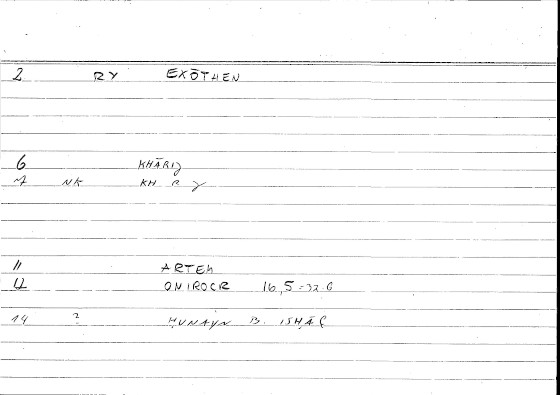 2 RY EXŌTHEN
6 KHĀRIJ
7 NK KH R J
11 ARTEM
12 ONIROCR 16,5=32.6
14 ? ḤUNAYN B. ISḤĀḲ